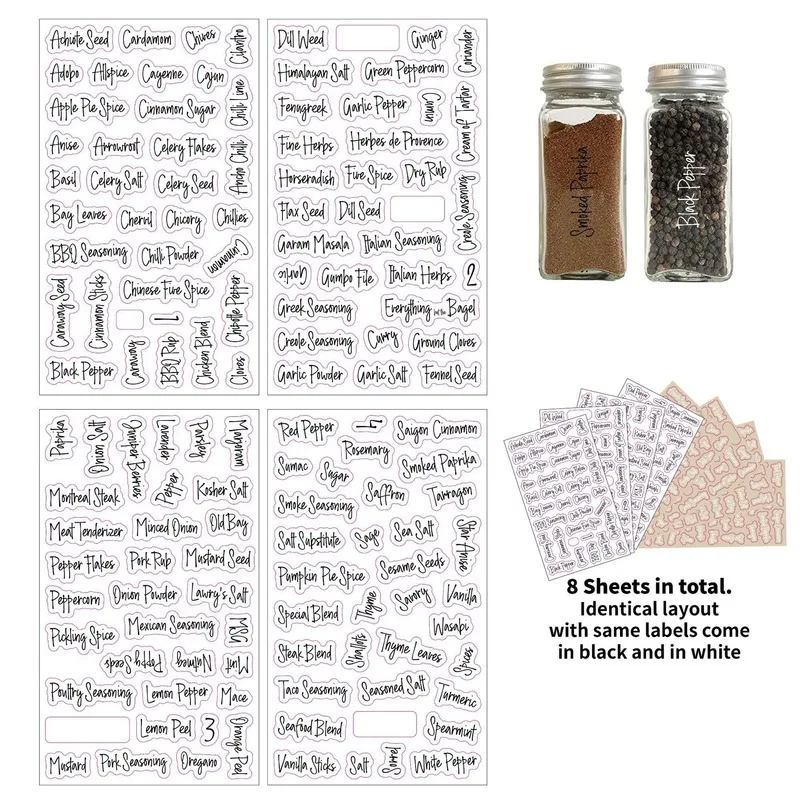 Achiote Seed
Cardamom
Chives
Cilantro
Adobo
Allspice
Cayenne
Cajun
Chilli Lime
Apple Pie Spice
Cinnamon Sugar
Anise
Arrowroot
Celery Flakes
Ancho Chilli
Basil
Celery Salt
Celery Seed
Bay Leaves
Chervil
Chicory
Chilies
BBQ Seasoning
Chilli Powder
Cinnamon
Caraway Seed
Cinnamon Sticks
Chinese Five Spice
Chipotle Pepper
Caraway
1
BBQ Rub
Chicken Blend
Cloves
Black Pepper
Dill Weed
Ginger
Coriander
Himalayan Salt
Green Peppercorn
Fenugreek
Garlic Pepper
Cumin
Cream of Tartar
Fine Herbs
Herbes de Provence
Horseradish
Five Spice
Dry Rub
Creole Seasoning
Flax Seed
Dill Seed
Garam Masala
Italian Seasoning
Garlic
Gumbo File
Italian Herbs
2
Greek Seasoning
Everything but the Bagel
Creole Seasoning
Curry
Ground Cloves
Garlic Powder
Garlic Salt
Fennel Seed
Paprika
Onion Salt
Juniper Berries
Lavender
Parsley
Marjoram
Montreal Steak
Pepper
Kosher Salt
Meat Tenderizer
Minced Onion
Old Bay
Pepper Flakes
Pork Rub
Mustard Seed
Peppercorn
Onion Powder
Lawry's Salt
Pickling Spice
Mexican Seasoning
MSG
Poppy Seeds
Nutmeg
Mint
Poultry Seasoning
Lemon Pepper
Mace
Lemon Peel
3
Orange Peel
Mustard
Pork Seasoning
Oregano
Red Pepper
4
Saigon Cinnamon
Rosemary
Sumac
Sugar
Smoked Paprika
Smoke Seasoning
Saffron
Tarragon
Salt Substitute
Sage
Sea Salt
Star Anise
Pumpkin Pie Spice
Sesame Seeds
Special Blend
Thyme
Savory
Vanilla
Wasabi
Steak Blend
Shallots
Thyme Leaves
Spices
Taco Seasoning
Seasoned Salt
Turmeric
Seafood Blend
Spearmint
Vanilla Sticks
Salt
Sorrel
White Pepper
Smoked Paprika
Black Pepper
8 Sheets in total.
Identical layout
with same labels come
in black and in white